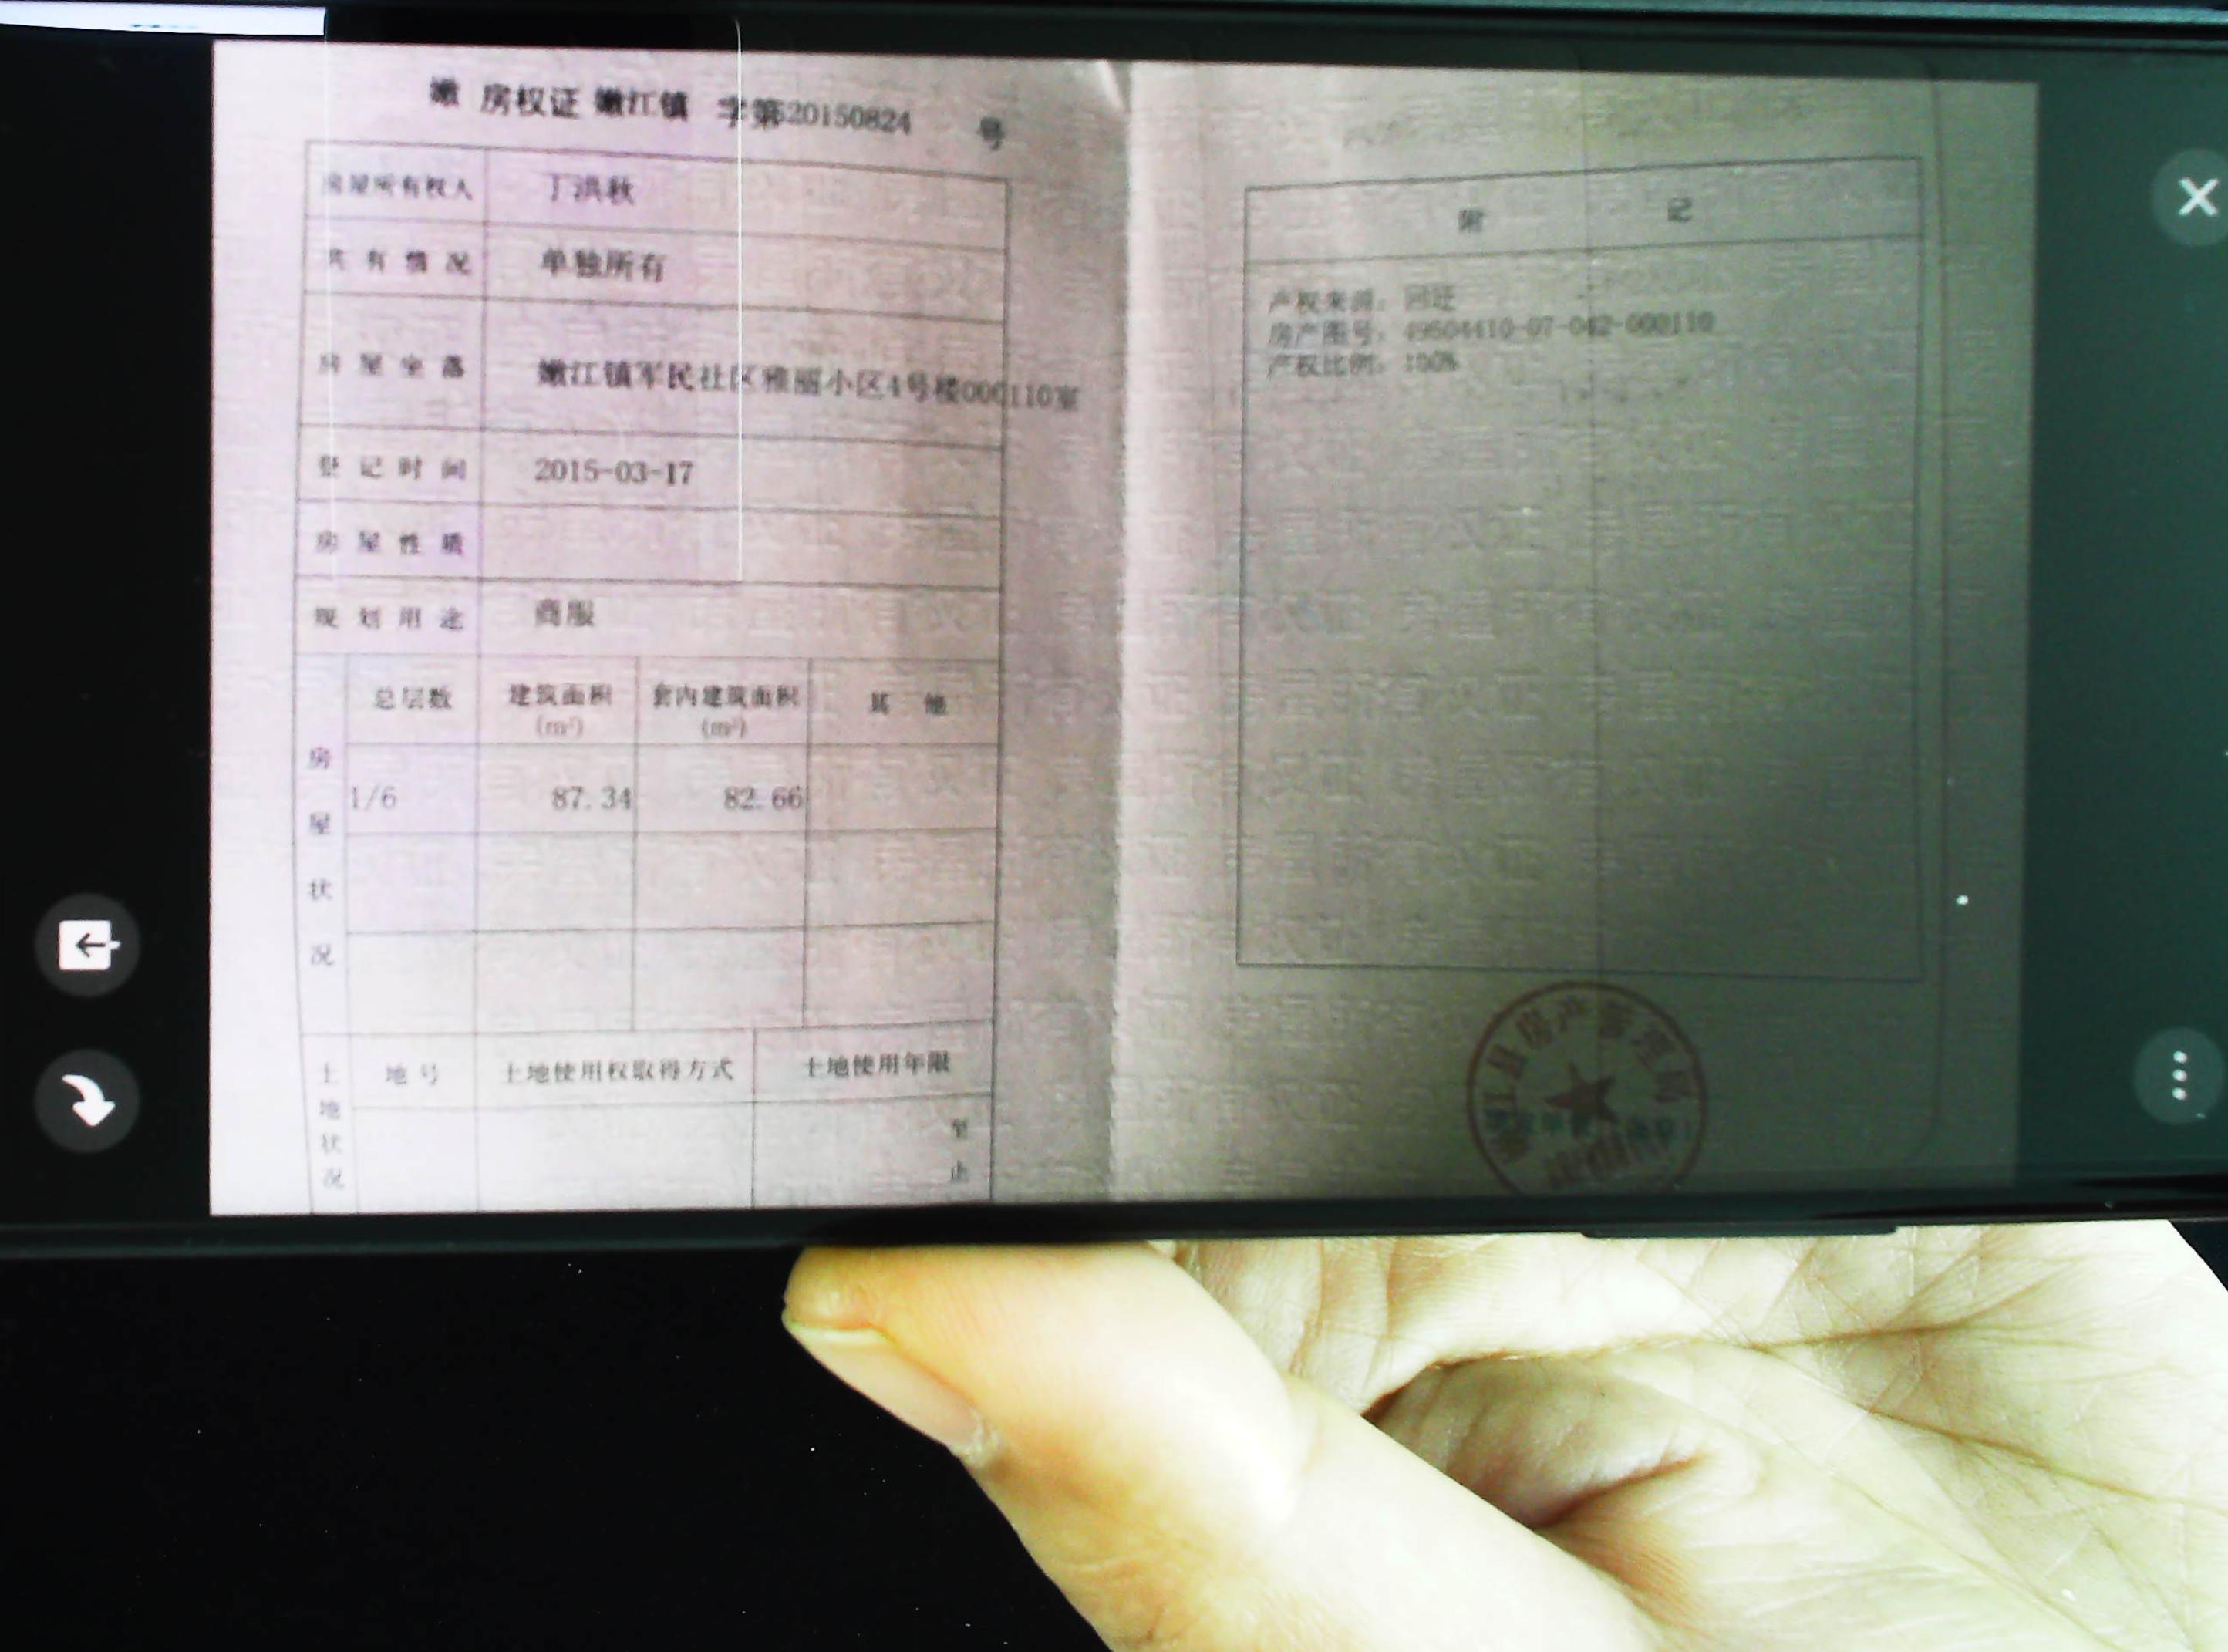 嫩 房权证 嫩江镇 字第S20150824 号
房屋所有权人 丁洪秋
共有情况 单独所有
房屋坐落 嫩江镇军民社区雅丽小区4号楼000110室
登记时间 2015-03-17
房屋性质
规划用途 商服
房屋状况
总层数 建筑面积(m²) 套内建筑面积(m²) 其他
1/6 87.34 82.66
土地状况
地号 土地使用权取得方式 土地使用年限
至
止
附记
产权来源：回迁
房产图号：49604410-07-042-000110
产权比例：100%
嫩江县房产管理局